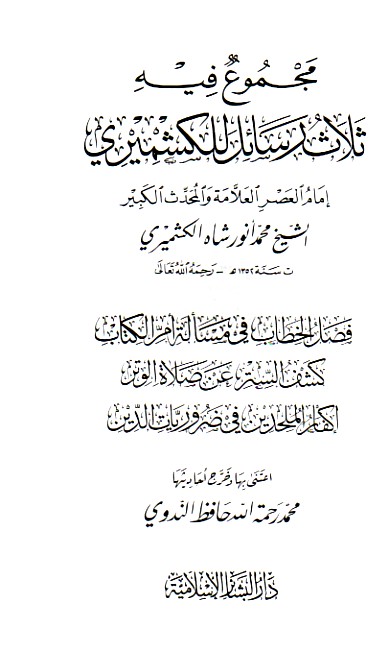 مَجْمُوعٌ فِيهِ
ثَلَاثُ رَسَائِل لِلكَشْمِيْرِي
إِمَامُ العَصْرِ العَلَّامَة وَالمُحَدِّث الكَبِير
الشيخ محمد أنور شاه الكشميري
ت سَنَة ١٣٥٢ هـ - رَحِمَهُ اللهُ تَعَالَى
فَصْلُ الخِطَابِ فِي مَسْأَلَة أُمِّ الكِتَاب
كَشْفُ السِّتْرِ عَنْ صَلَاة الوِتْر
إِكْفَارُ المُلْحِدِين فِي ضَرُورِيَّاتِ الدِّين
اعْتَنَى بِهَا وَخَرَّجَ أَحَادِيثَهَا
محمد رحمة الله حافظ الندوي
دَارُ البَشَائِر الإِسْلَامِيَّة